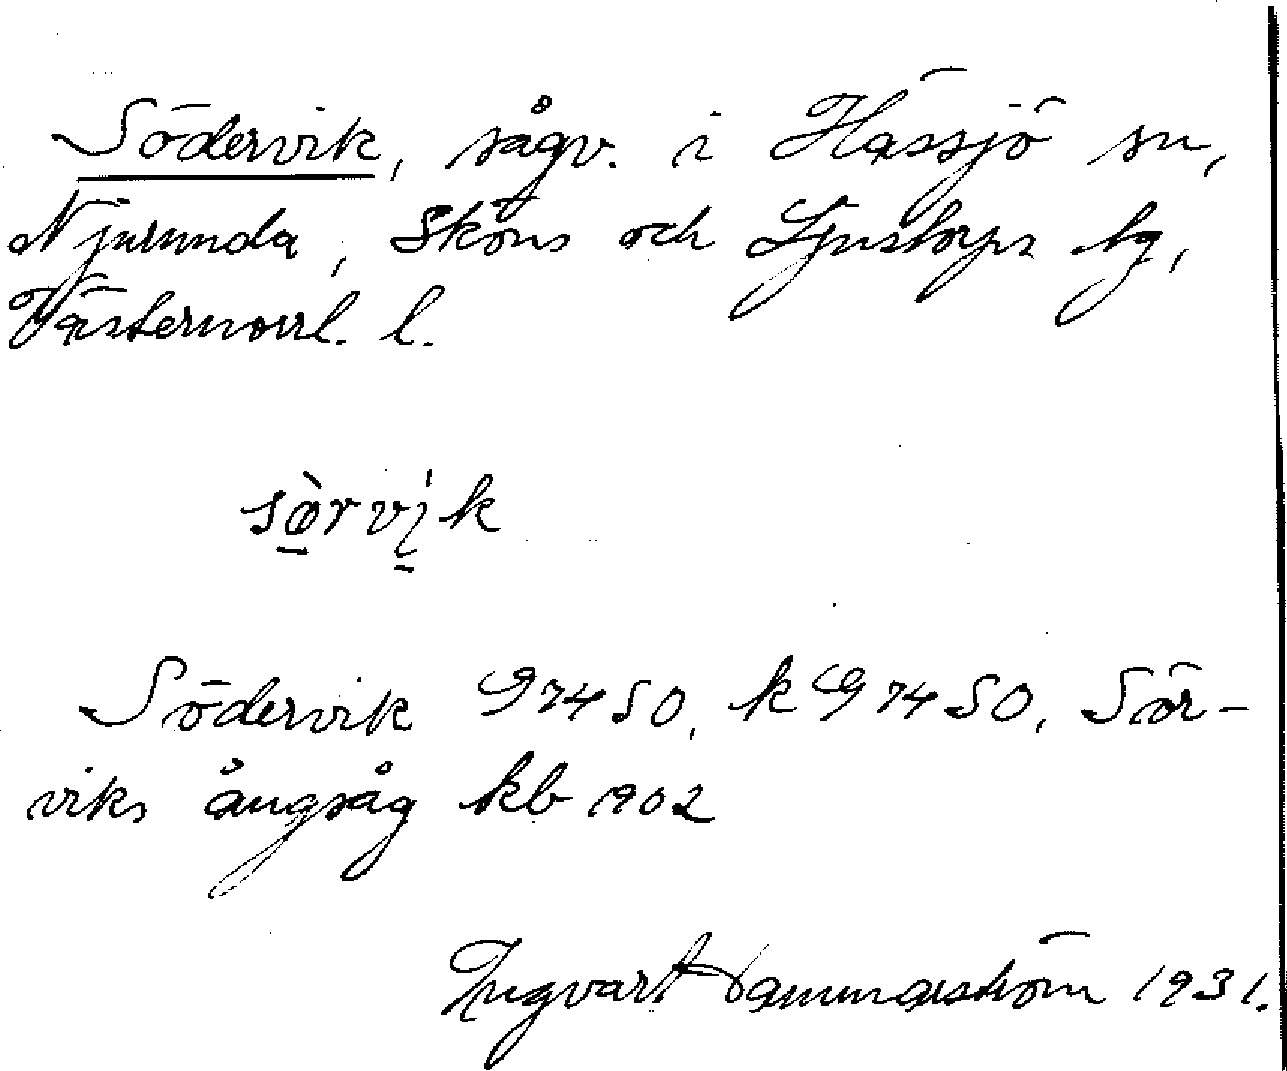 Södervik, sågv. i Hässjö sn,
Njurunda, Sköns och Ljustorps tg,
Västernorrl. l.
sø̀rvik
Södervik G74SO, k G74SO, Sör-
viks ångsåg kb 1902
Ingvart Hammarström 1931.